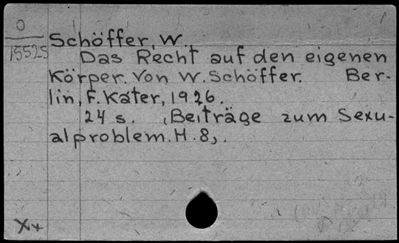 O
15525
Schöffer, W.
Das Recht auf den eigenen
Körper. Von W. Schöffer. Ber-
lin, F. Kater, 1926.
24 s. (Beiträge zum Sexu-
alproblem. H. 8).
X+